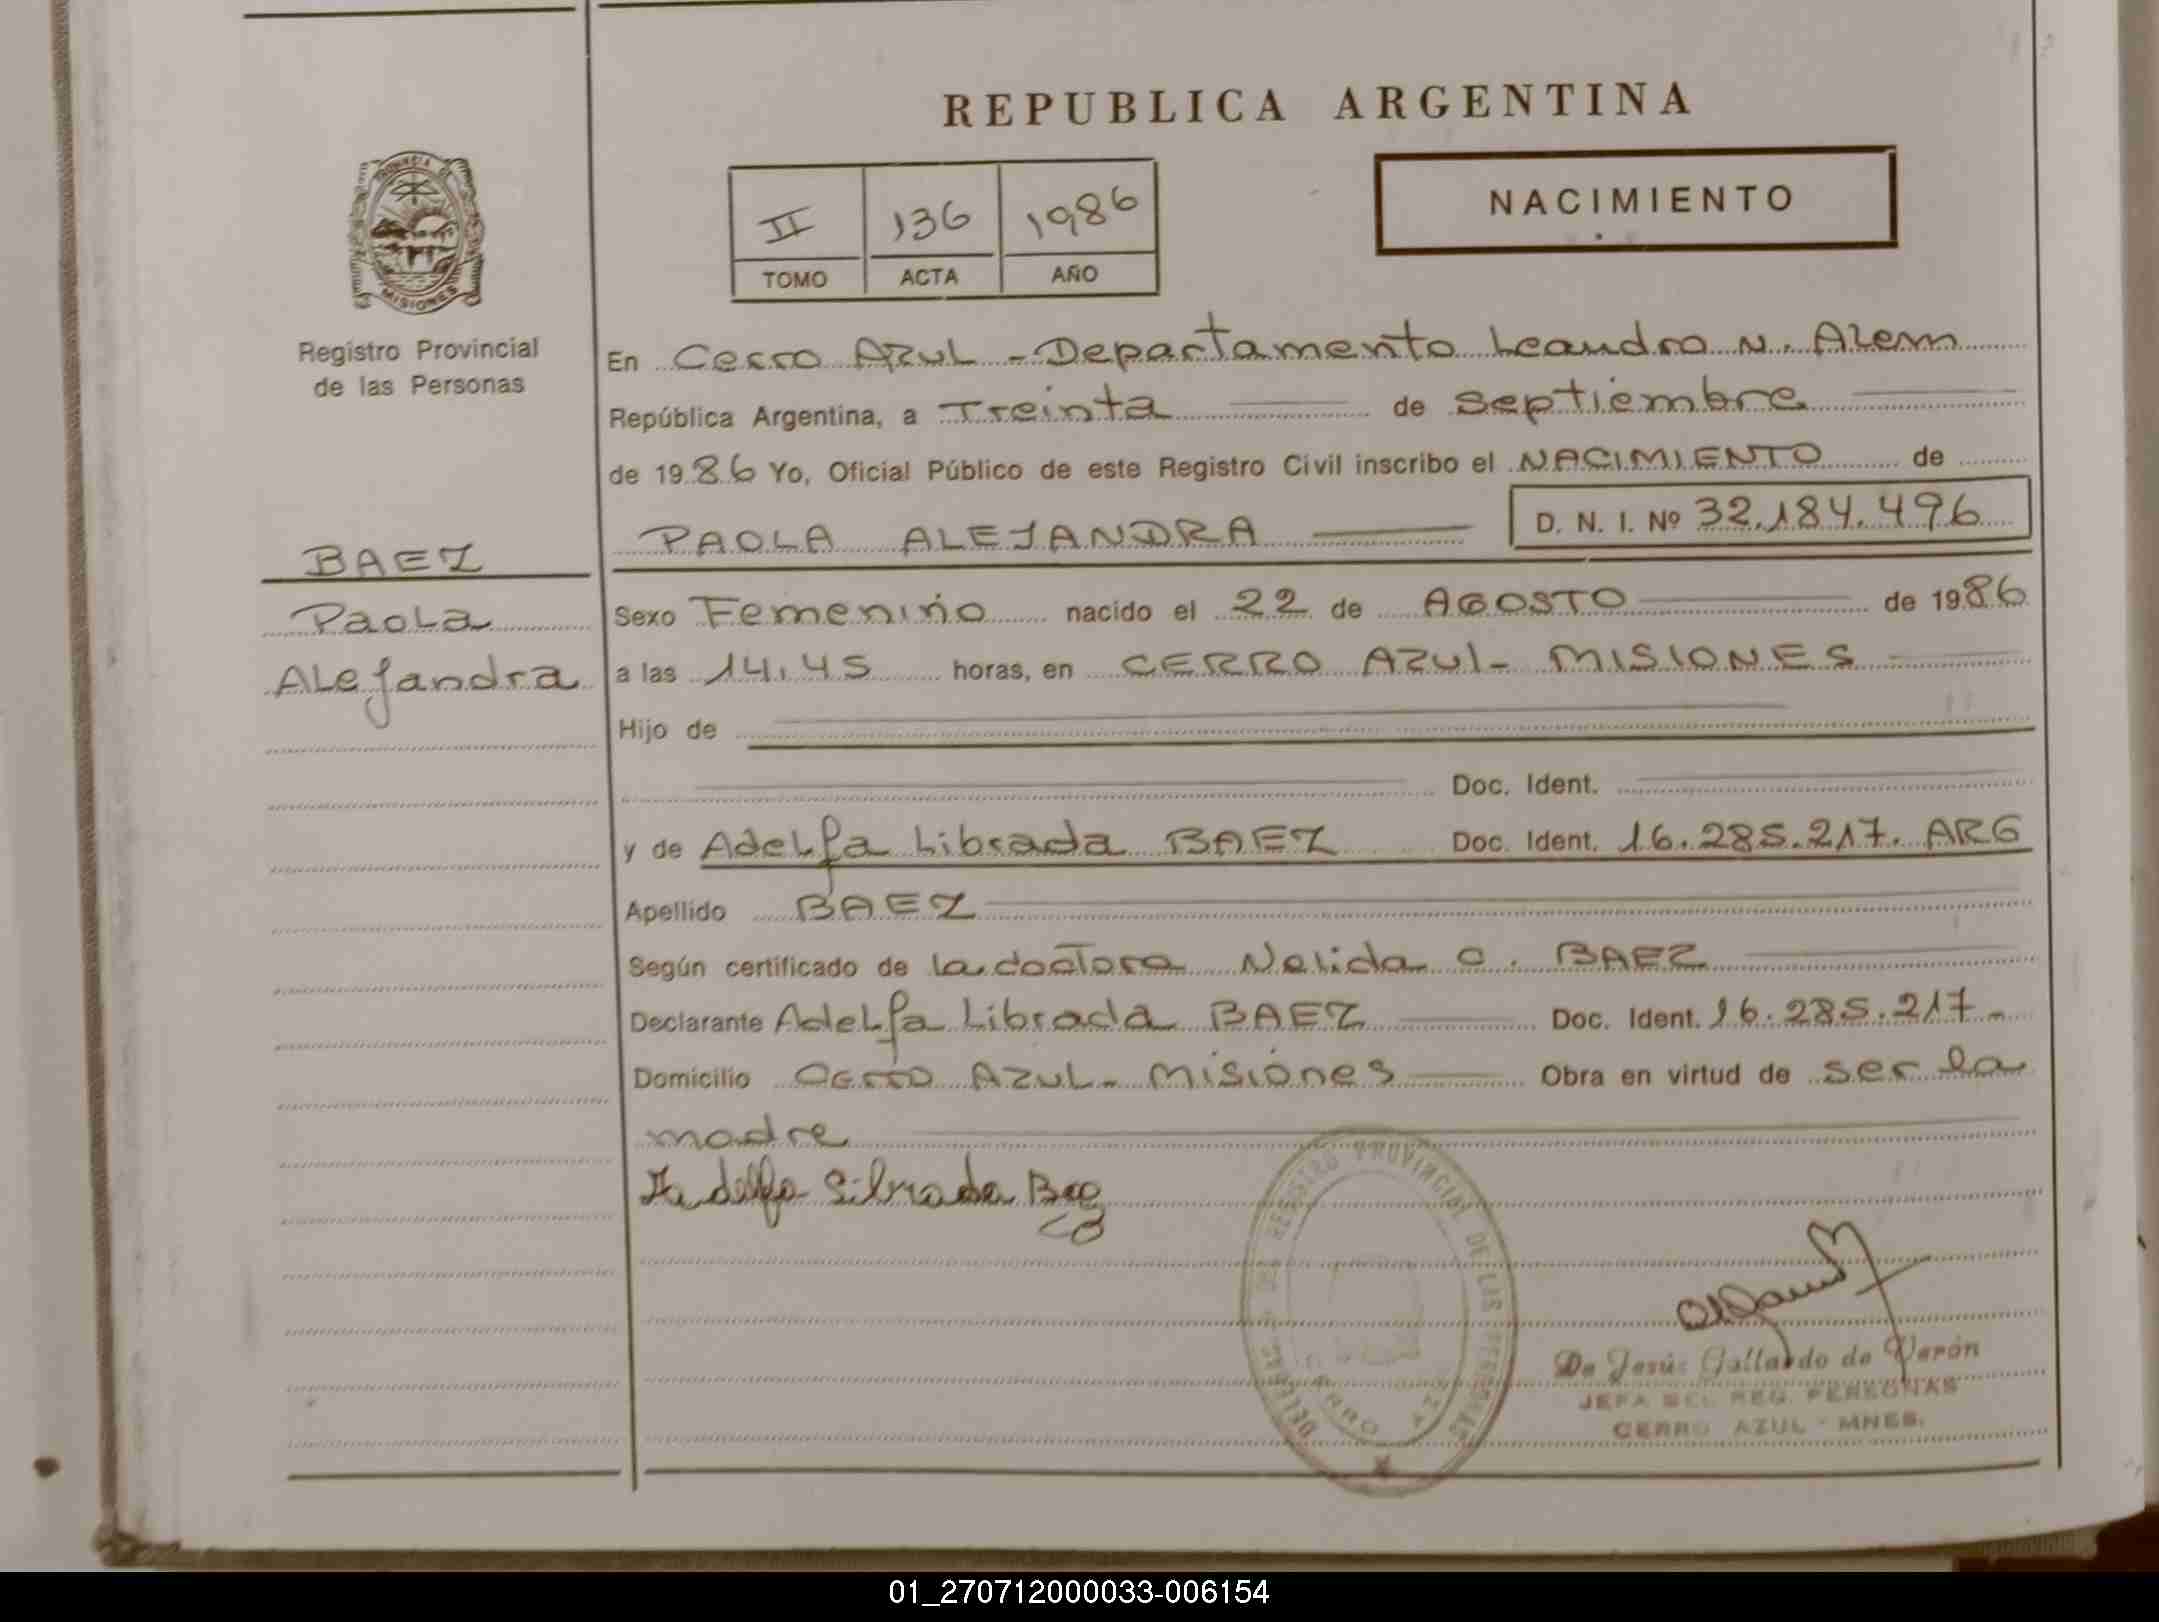 REPUBLICA ARGENTINA
PROVINCIA DE
MISIONES
Registro Provincial
de las Personas
II 136 1986
TOMO ACTA AÑO
NACIMIENTO
En Cerro AZUL - Departamento Leandro N. Alem
República Argentina, a Treinta de Septiembre
de 1986 Yo, Oficial Público de este Registro Civil inscribo el NACIMIENTO de
PAOLA ALEJANDRA D. N. I. Nº 32.184.496
BAEZ
Paola
ALejandra
Sexo Femenino nacido el 22 de AGOSTO de 1986
a las 14.45 horas, en CERRO AZUL- MISIONES
Hijo de
Doc. Ident.
y de AdeLfa Librada BAEZ Doc. Ident. 16.285.217. ARG
Apellido BAEZ
Según certificado de La doctora Nelida O. BAEZ
Declarante AdeLfa Librada BAEZ Doc. Ident. 16.285.217-
Domicilio Cerro AZUL- Misiones Obra en virtud de ser la
madre
REGISTRO PROVINCIAL DE LAS PERSONAS
CERRO AZUL
De Jesús Gallardo de Verón
JEFA DEL REG. PERSONAS
CERRO AZUL - MNES.
01_270712000033-006154